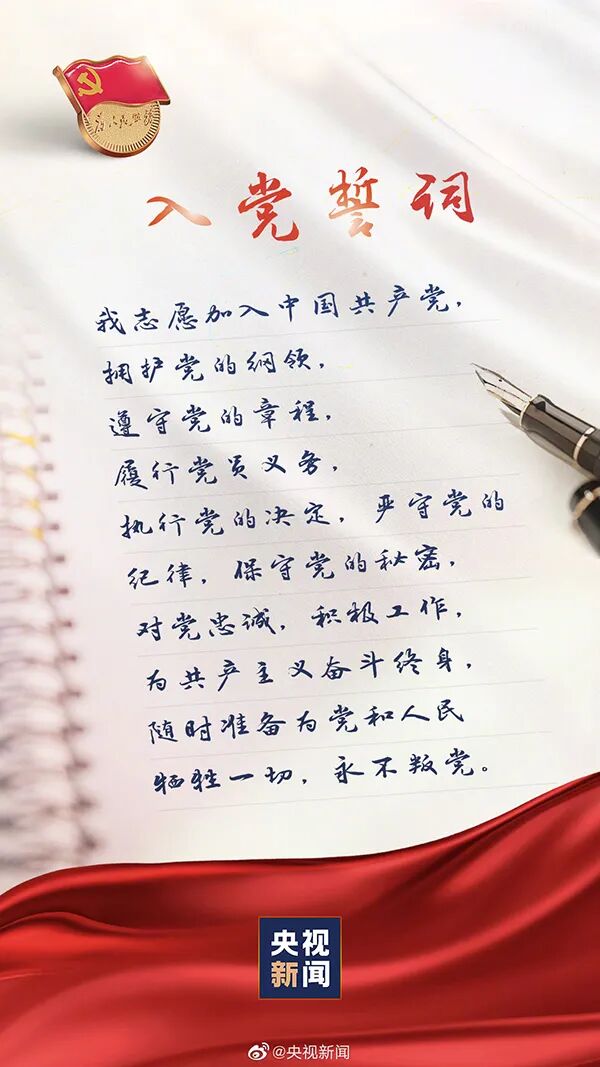 为人民服务
入党誓词
我志愿加入中国共产党，
拥护党的纲领，
遵守党的章程，
履行党员义务，
执行党的决定，严守党的
纪律，保守党的秘密，
对党忠诚，积极工作，
为共产主义奋斗终身，
随时准备为党和人民
牺牲一切，永不叛党。
央视
新闻
@央视新闻